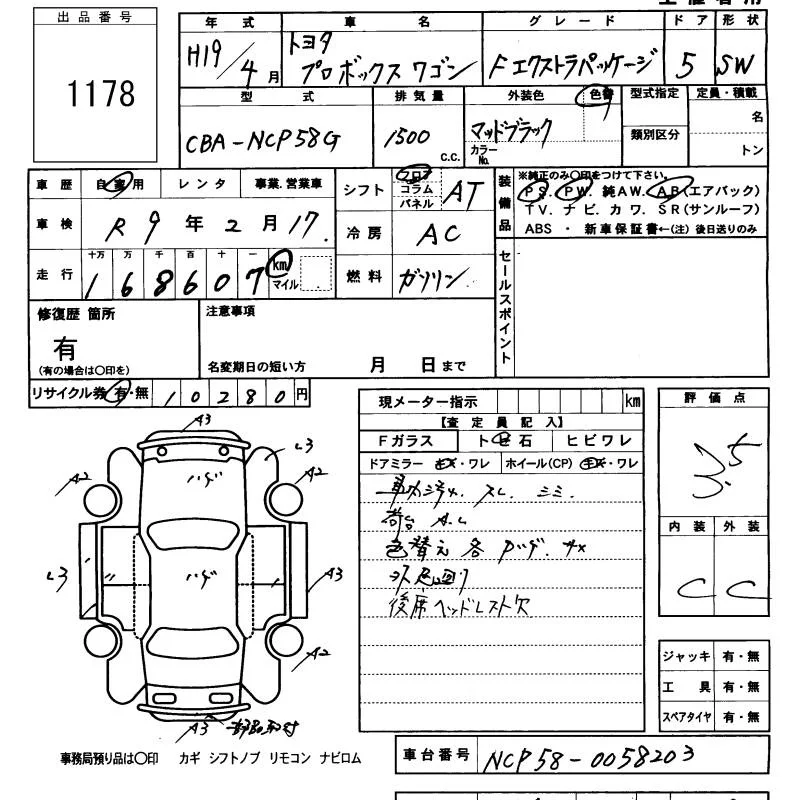 出品番号
1178
年式 車名 グレード ドア 形状
H19/4月 トヨタ プロボックスワゴン Fエクストラパッケージ 5 SW
型式 排気量 外装色 色替 型式指定 定員・積載
CBA-NCP58G 1500 c.c. マッドブラック カラーNo. 類別区分 名 トン
車歴 自家用 レンタ 事業.営業車
シフト フロア コラム パネル AT
装備品 ※純正のみ〇印をつけて下さい。
PS. PW. 純AW. AB(エアバック)
TV. ナビ. カワ. SR(サンルーフ)
ABS ・ 新車保証書←(注) 後日送りのみ
車検 R9年2月17.
冷房 AC
走行 十万 万 千 百 十 一
168607 km マイル
燃料 ガソリン
セールスポイント
修復歴 箇所 注意事項
有
(有の場合は〇印を) 名変期日の短い方 月 日まで
リサイクル券 有・無 10280円
現メーター指示 km
【査定員記入】
Fガラス トビ石 ヒビワレ
ドアミラー キズ・ワレ ホイール(CP) キズ・ワレ
スレ
荷台
色替え 各
後席ヘッドレスト欠
評価点
3.5
内装 外装
C C
A3
L3
A2
A2
L3
A3
A2
A3
ハゲ
ハゲ
ジャッキ 有・無
工具 有・無
スペアタイヤ 有・無
事務局預り品は〇印 カギ シフトノブ リモコン ナビロム
車台番号 NCP58-0058203